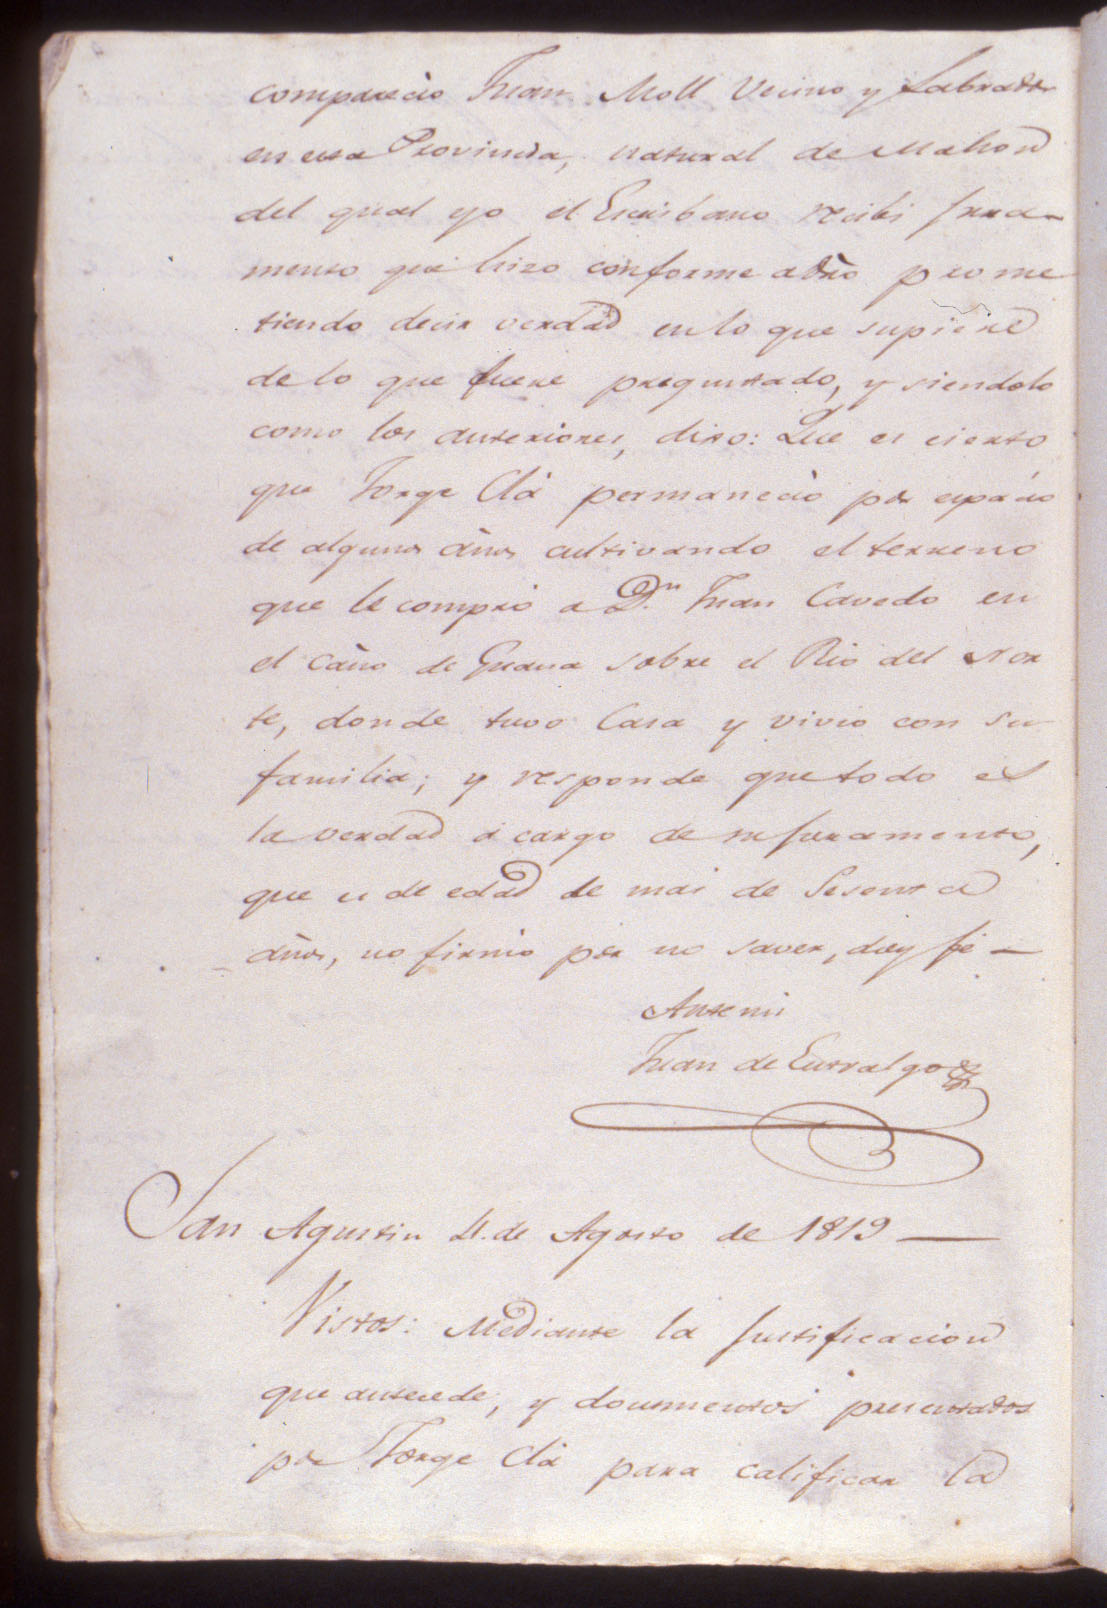 comparecio Juan Moll Vecino y Labrador
en esta Provincia, natural de Mahon
del qual yo el Escribano recibi jura-
mento que hizo conforme a dro prome
tiendo decir verdad en lo que supiere
de lo que fuere preguntado, y siendolo
como los anteriores, dixo: Que es cierto
que Jorge Clà permanecio por espacio
de algunos años cultivando el terreno
que le compró a Dn. Juan Cavedo en
el Caño de Guana sobre el Rio del Nor
te, donde tuvo Casa y vivio con su
familia; y responde que todo es
la verdad à cargo de su juramento,
que es de edad de mas de Sesenta
años, no firmó por no saver, doy fé —
Ante mi
Juan de Entralgo
San Agustin 4. de Agosto de 1819 —
Vistos: Mediante la justificacion
que antecede, y documentos presentados
por Jorge Clà para calificar la